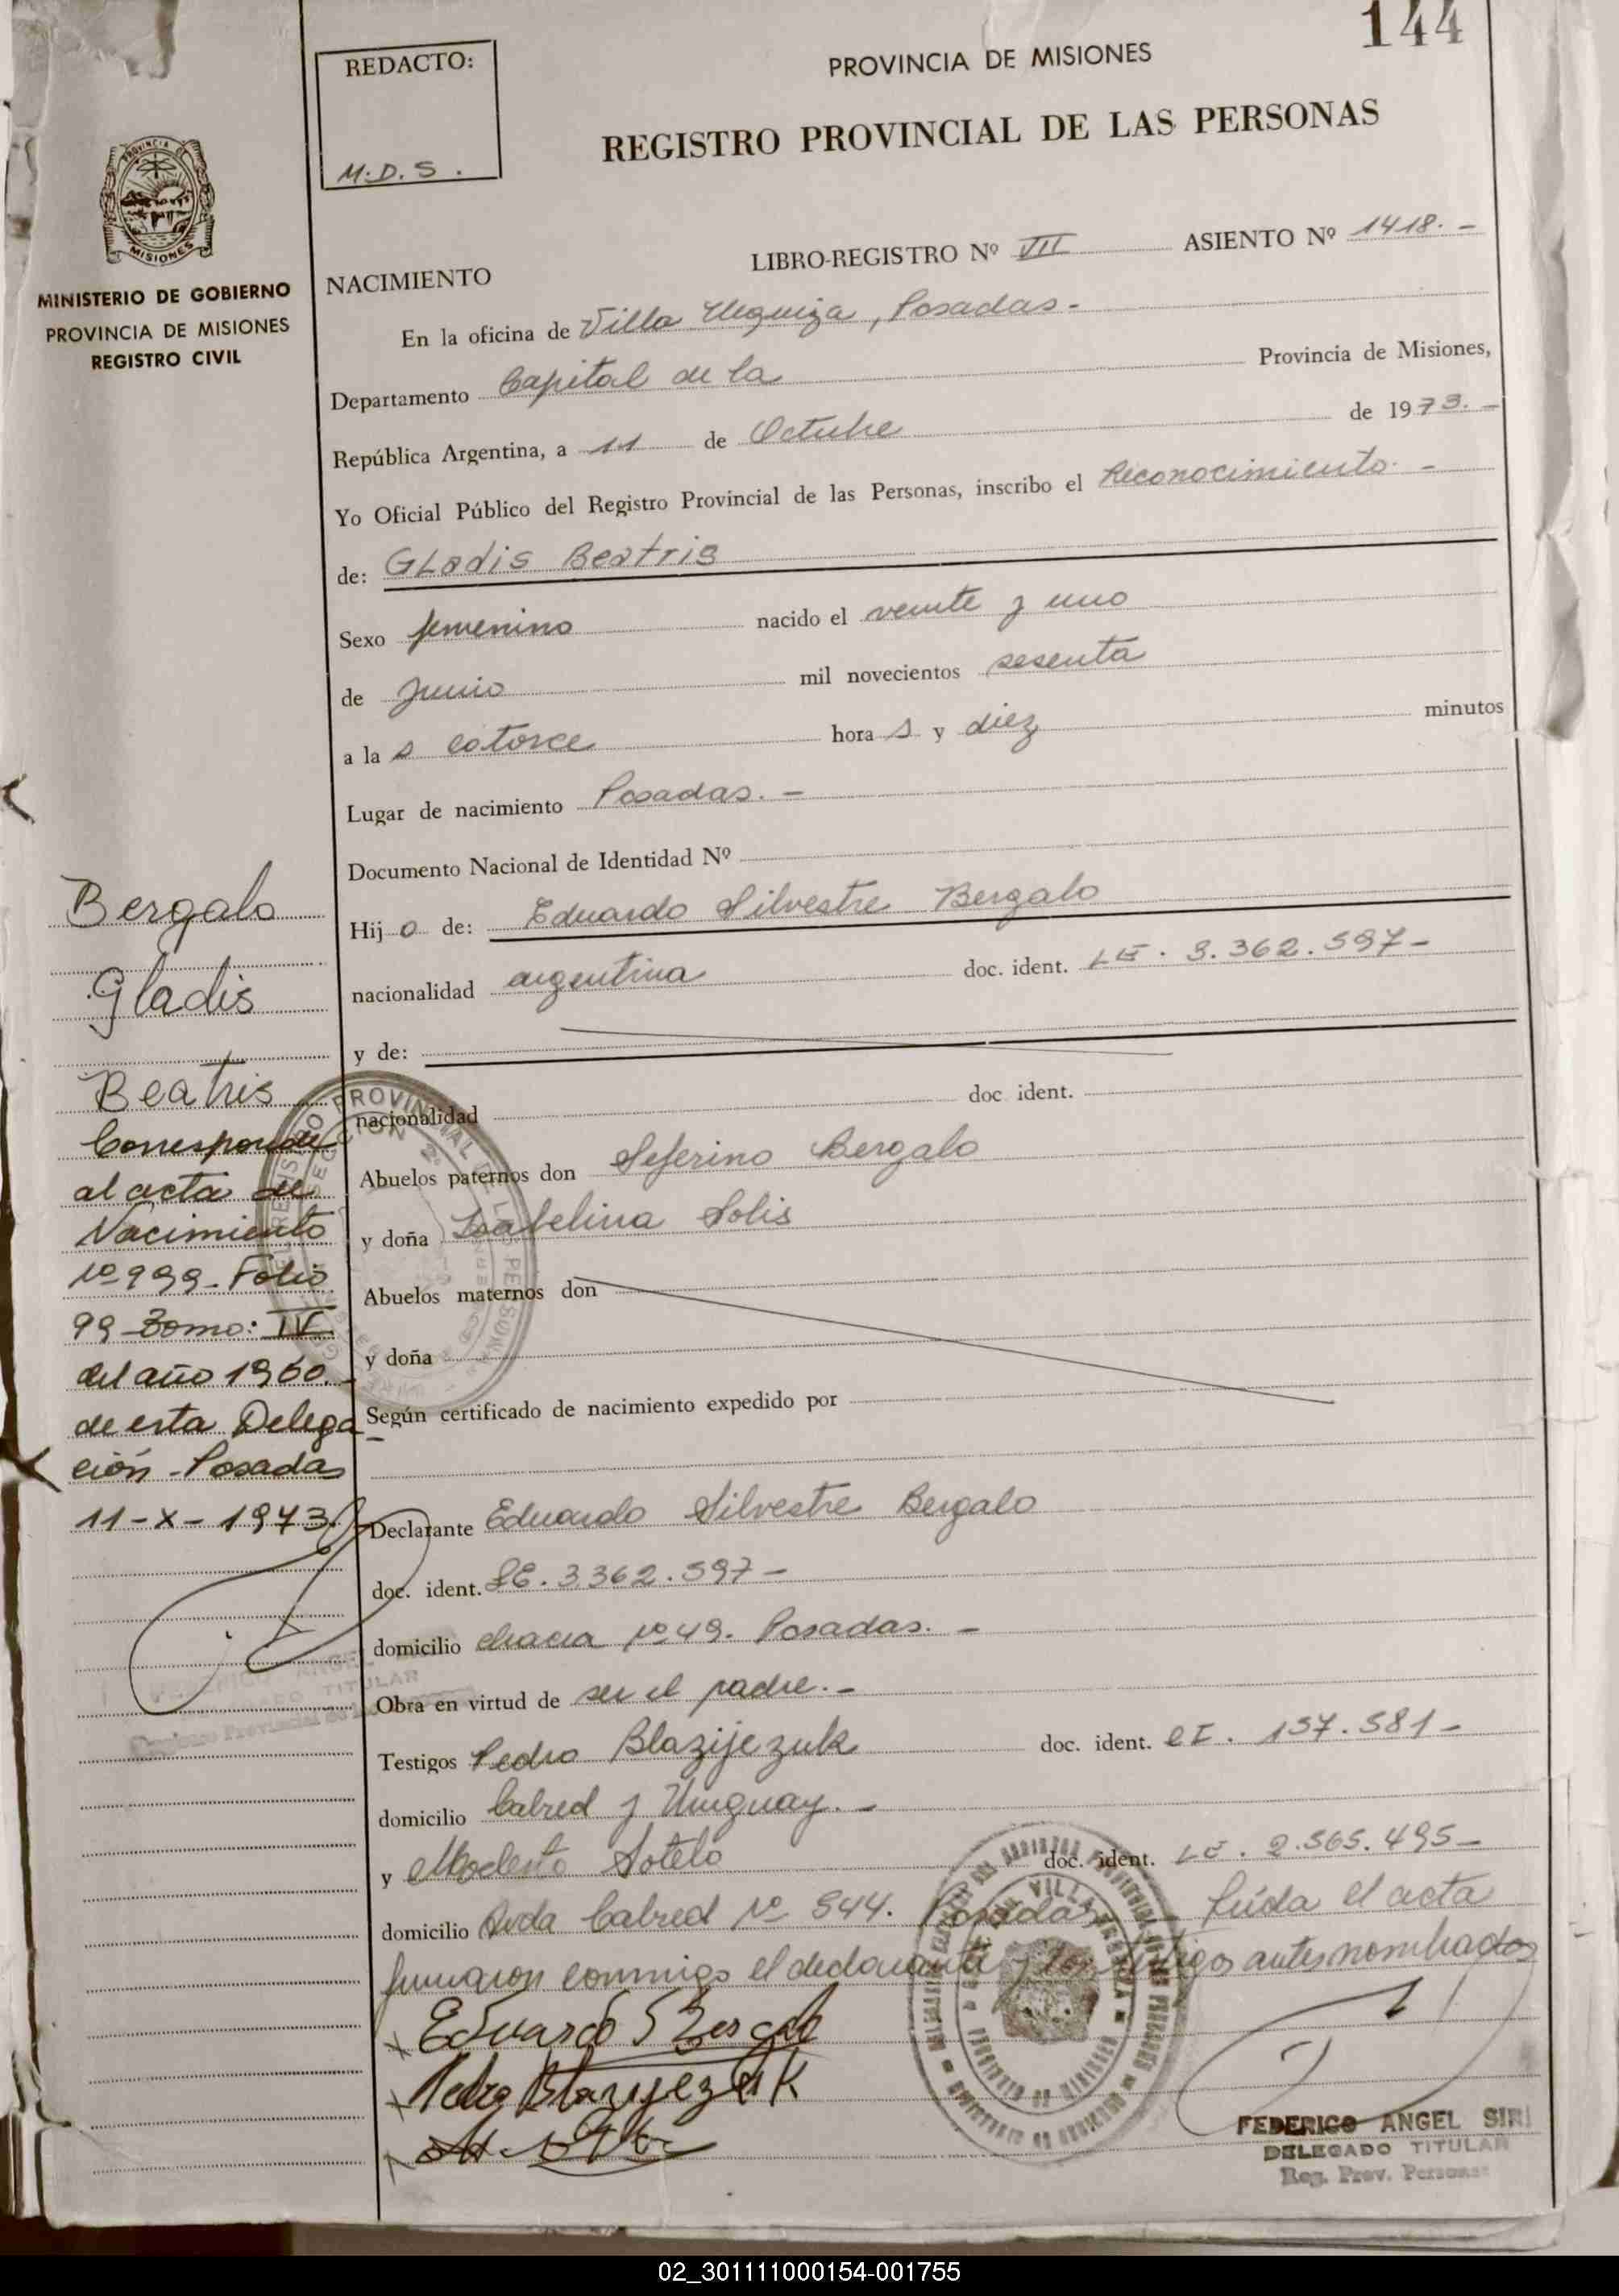 144
REDACTO:
M.D.S.
PROVINCIA DE MISIONES
REGISTRO PROVINCIAL DE LAS PERSONAS
PROVINCIA DE
MISIONES
MINISTERIO DE GOBIERNO
PROVINCIA DE MISIONES
REGISTRO CIVIL
LIBRO-REGISTRO Nº VII ASIENTO Nº 1418. -
NACIMIENTO
En la oficina de Villa Urquiza, Posadas-
Departamento Capital de la Provincia de Misiones,
República Argentina, a 11 de Octubre de 1973. -
Yo Oficial Público del Registro Provincial de las Personas, inscribo el Reconocimiento. -
de: Gladis Beatris
Sexo femenino nacido el veinte y uno
de Junio mil novecientos sesenta
a la s catorce hora s y diez minutos
Lugar de nacimiento Posadas. -
Documento Nacional de Identidad Nº
Hij o de: Eduardo Silvestre Bergalo
nacionalidad argentina doc. ident. LE. 3.362.597-
y de:
nacionalidad doc ident.
Abuelos paternos don Seferino Bergalo
y doña Isabelina Solis
Abuelos maternos don
y doña
Según certificado de nacimiento expedido por
Declarante Eduardo Silvestre Bergalo
doc. ident. LE. 3.362.597-
domicilio chacra nº 49. Posadas. -
Obra en virtud de ser el padre. -
Testigos Pedro Blazijezuk doc. ident. CI. 157.581-
domicilio Cabred y Uruguay. -
y Modesto Sotelo doc. ident. LE. 2.565.495-
domicilio Avda Cabred nº 544. Posadas Leída el acta
firmaron conmigo el declarante y los testigos antes nombrados
Eduardo S Bergalo
Pedro Blazijezuk
FEDERICO ANGEL SIRI
DELEGADO TITULAR
Reg. Prov. Personas
Bergalo
Gladis
Beatris
Corresponde
al acta de
Nacimiento
nº 999- Folio
99 Tomo: IV
del año 1960.
de esta Delega
ción - Posadas
11-X-1973.
02_301111000154-001755